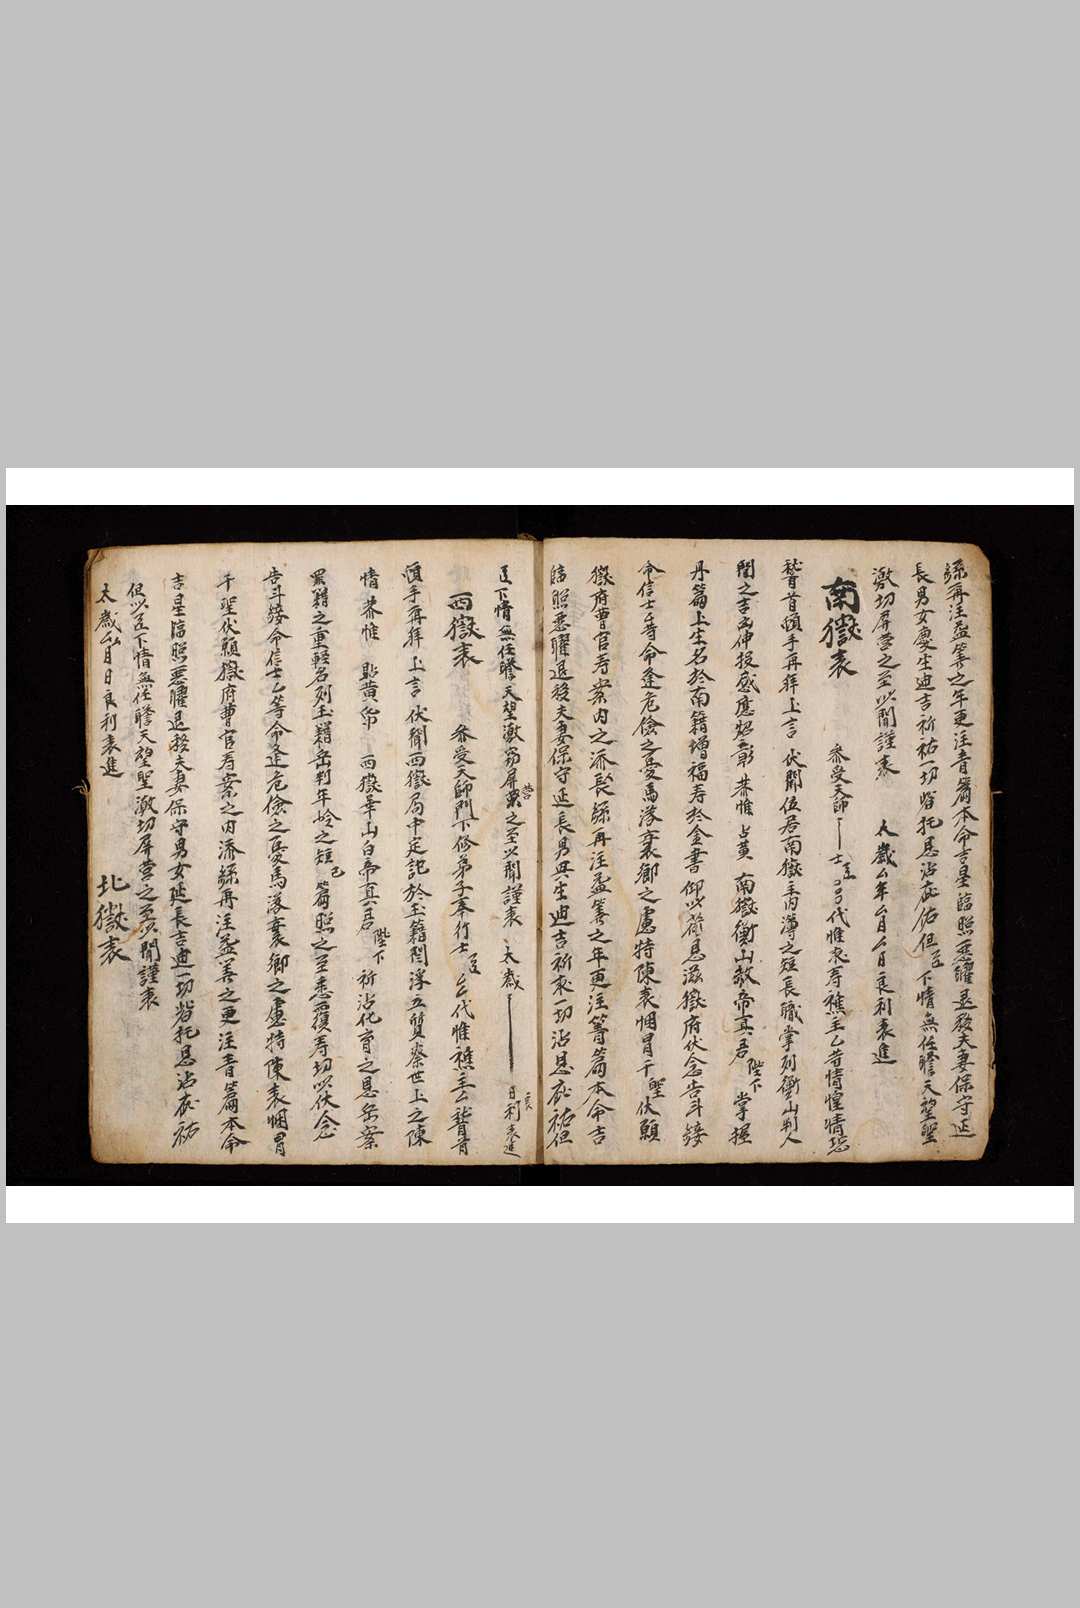 綵再注益筭之年更注青篇本命吉星臨照惡曜退移夫妻保守延
長男女慶生迪吉祈祐一切皆托恩沾庇佑但臣下情無任瞻天望聖
激切屏營之至以聞謹表 太歲厶年厶月厶日良利表進
南嶽表 叅受天師 士臣 代惟求壽醮主乙昔情惶情恐
稽首頓手再拜上言 伏聞位居南嶽主内薄之短長職掌列衡山判人
間之吉凶仲投感應昭彰恭惟 占黃 南嶽衡山敎帝真君陛下 掌握
丹篇上生名於南籍增福寿於金書仰以蒞恩滋嶽府伏念告斗錢
命信士乇等命逢危儉之憂馬落衰鄉之慮特陳表悃冒干聖伏願
嶽府曹官寿案内之添長綵再注益筭之年更注筭篇本命吉
臨照惡曜退移夫妻保守延長男與生迪吉祈求一切沾恩庇祐但
臣下情無任瞻天望激切屏營之至以聞謹表 太歲 日利表進
西嶽表 叅受天師門下修弟子奉行士臣 乞代惟醮主厶稽首
頓手再拜上言 伏聞西嶽局中定記於玉籍閻浮五質察世上之陳
情 恭惟 貼黃 西嶽華山白帝真君陛下祈沾化育之恩岳案
黑籍之重輕名列玉籍岳判年岭之短 篇照之至悉覆寿切以伏念
告斗錢命信士乙等命逢危儉之憂馬落衰鄉之慮特陳表悃冒
干聖伏願嶽府曹官寿案之内添綵再注益善之更注青篇本命
吉星臨照惡曜退移夫妻保守男女延長吉迪一切皆托恩沾庇祐
但以臣下情無任瞻天望聖激切屏營之至以聞謹表
太歲厶月日良利表進 北嶽表